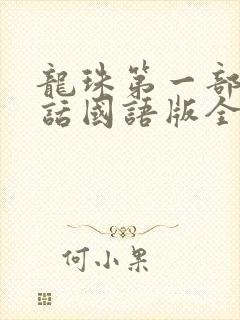 龍珠第一部
話國語版全
何小果